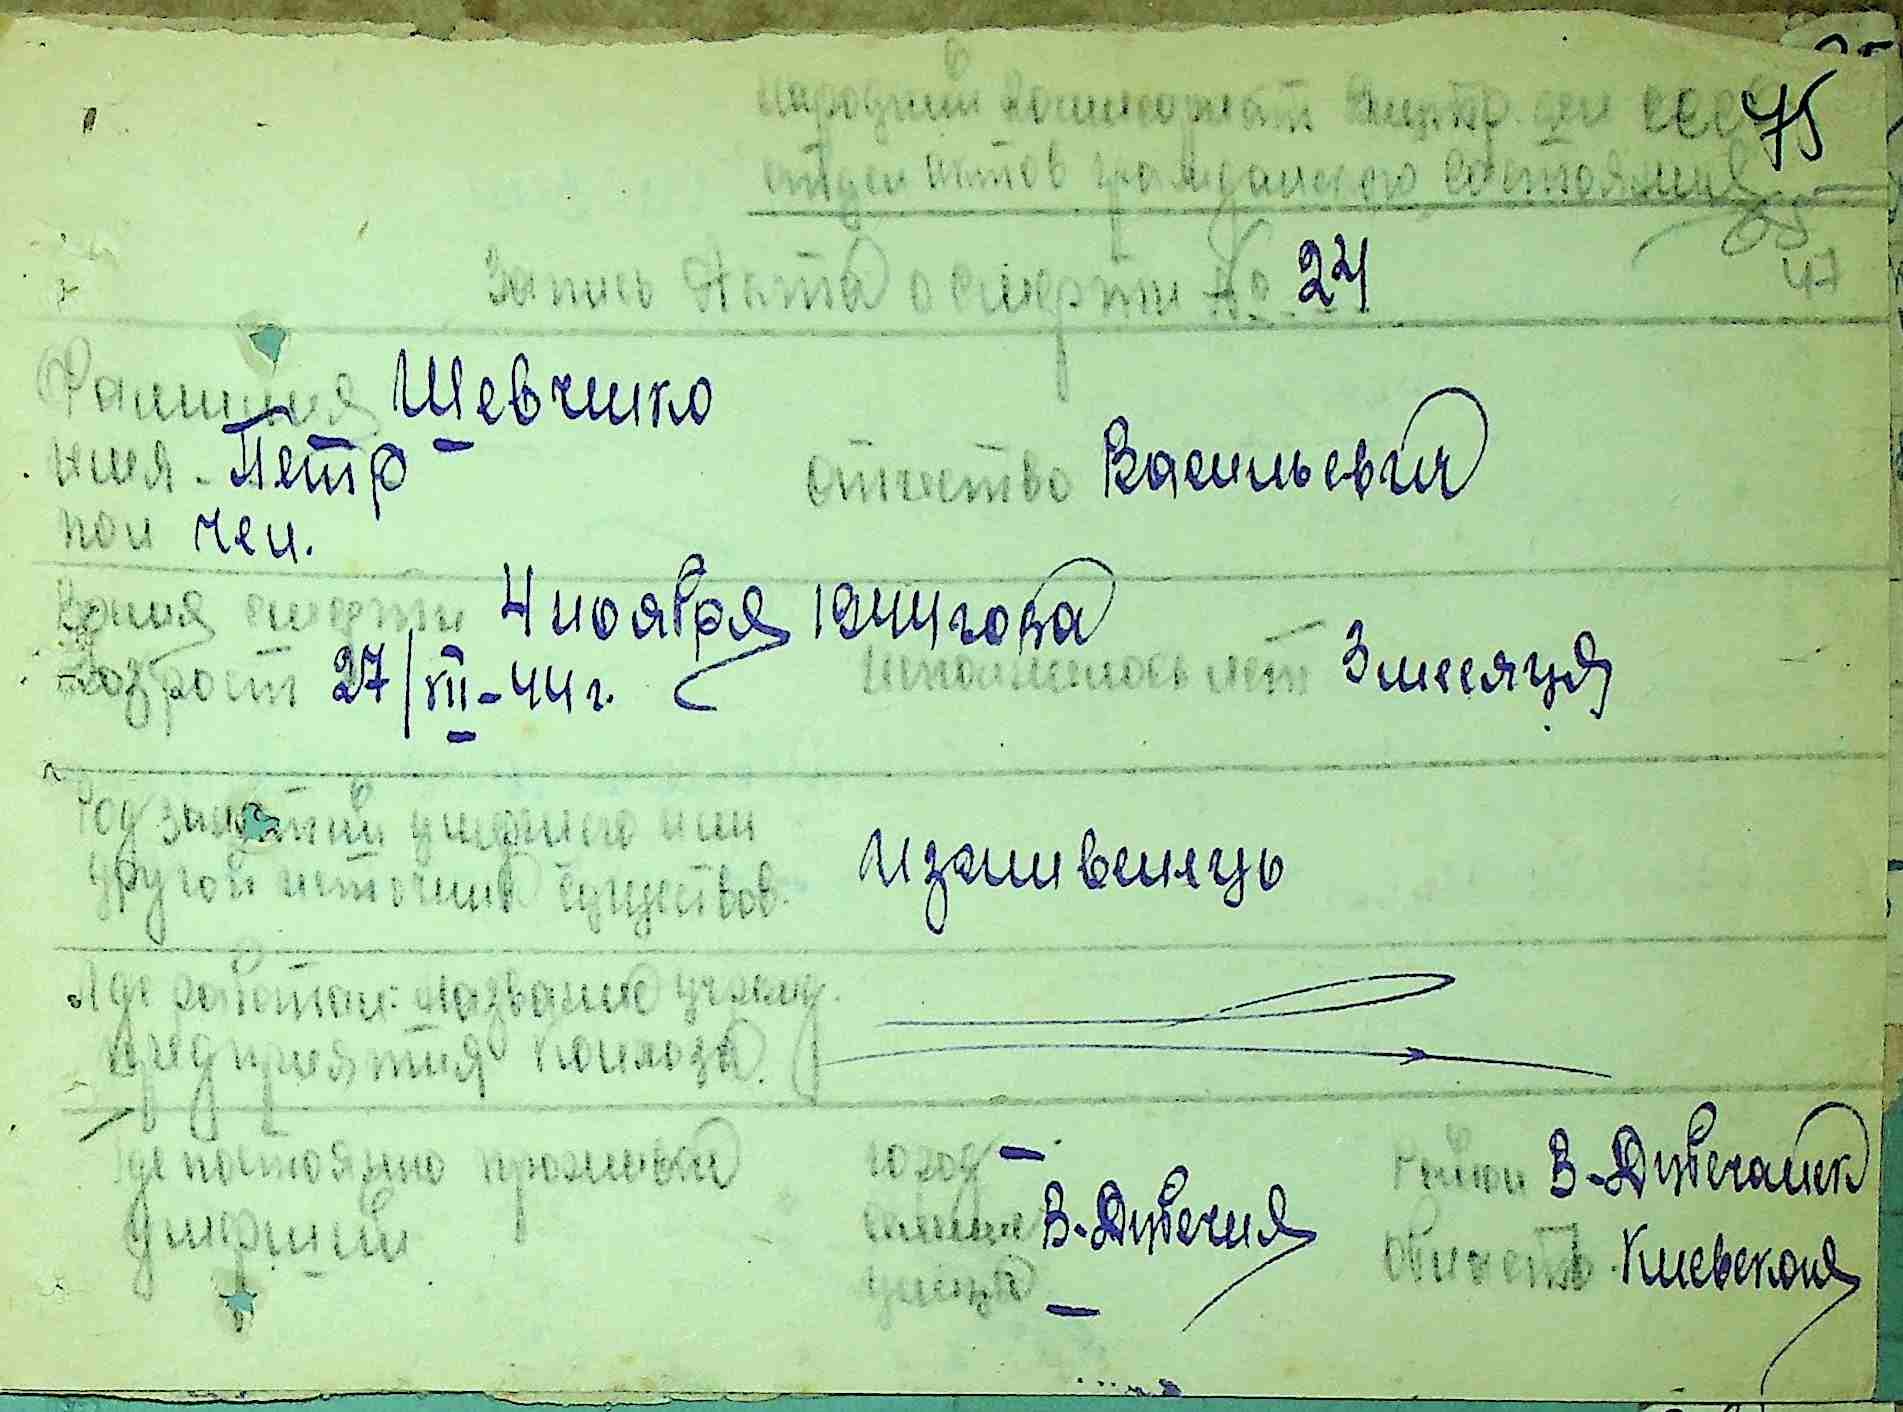 Народный комиссариат внутр. дел СССР
75
отдел актов гражданского состояния
65
47
Запись Акта о смерти № 24
Фамилия Шевченко
имя - Петр отчество Васильевич
пол чел.
Время смерти 4 ноября 1944 года
возраст 27/VII-44 г. исполнилось лет 3 месяця
Род занятий умершего или
другой источник существов. Изживенець
Где работал: название учрежд.
предприятия колхоза.
Где постоянно проживал город - район В-Дубечанск
умерший селение В-Дубечня область Киевская
улица -